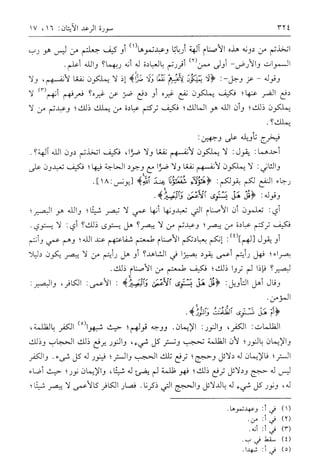 ٣٢٤ سورة الرعد الآيتان: ١٦، ١٧
اتخذتم من دونه هذه الأصنام آلهة أربابًا وعبدتموها(١) أو كيف جعلتم من ليس هو رب
السموات والأرض- أولى ممن(٢) أقررتم بالعبادة له أنه ربهما؟ والله أعلم.
وقوله - عز وجل-: ﴿لَا يَمْلِكُونَ لِأَنفُسِهِمْ نَفْعًا وَلَا ضَرًّا﴾ إذ لا يملكون نفعًا لأنفسهم، ولا
دفع الضر عنها؛ فكيف يملكون نفع غيره أو دفع ضر عن غيره؟ فعرفهم أنهم(٣) لا
يملكون ذلك؛ وأن الله هو المالك؛ فكيف تركتم عبادة من يملك ذلك؛ وعبدتم من لا
يملك؟.
فيخرج تأويله على وجهين:
أحدهما: يقول: لا يملكون لأنفسهم نفعًا ولا ضرًّا، فكيف اتخذتم دون الله آلهة؟.
والثاني: لا يملكون لأنفسهم نفعًا ولا ضرًّا مع وجود الحاجة فيها؛ فكيف تعبدون على
رجاء النفع لكم بقولكم: ﴿هَؤُلَاءِ شُفَعَاؤُنَا عِندَ اللَّهِ﴾ [يونس: ١٨].
وقوله: ﴿قُلْ هَلْ يَسْتَوِي الْأَعْمَىٰ وَالْبَصِيرُ﴾.
أي: تعلمون أن الأصنام التي تعبدونها أنها عمي لا تبصر شيئًا؛ والله هو البصير؛
فكيف تركتم عبادة من يبصر؛ وعبدتم من لا يبصر؟ هل يستوى ذلك؟ أي: لا يستوي.
أو يقول [لهم](٤): إنكم بعبادتكم الأصنام طمعتم شفاعتهم عند الله؛ وهم عمي وأنتم
بصراء؛ فهل رأيتم أعمى يقود بصيرًا في الشاهد؟ أو هل رأيتم من لا يبصر يكون دليلا
لبصير؟ فإذا لم تروا ذلك؛ فكيف طمعتم من الأصنام ذلك.
وقال أهل التأويل: ﴿قُلْ هَلْ يَسْتَوِي الْأَعْمَىٰ وَالْبَصِيرُ﴾ : الأعمى: الكافر، والبصير:
المؤمن.
﴿أَمْ هَلْ تَسْتَوِي الظُّلُمَاتُ وَالنُّورُ﴾.
الظلمات: الكفر، والنور: الإيمان. ووجه قولهم؛ حيث شبهوا(٥) الكفر بالظلمة،
والإيمان بالنور؛ لأن الظلمة تحجب وتستر كل شيء، والنور يرفع ذلك الحجاب وذلك
الستر؛ فالإيمان له دلائل وحجج؛ ترفع تلك الحجب والستر؛ فينور له كل شيء. والكفر
ليس له حجج ودلائل ترفع ذلك؛ فهو ظلمة لم يضئ له شيئًا، والإيمان نور؛ حيث أضاء
له، ونور كل شيء له بالدلائل والحجج التي ذكرنا. فصار الكافر كالأعمى لا يبصر شيئًا؛
(١) في أ: وعبدتموها.
(٢) في أ: من.
(٣) في أ: أنه.
(٤) سقط في ب.
(٥) في أ: شهدا.